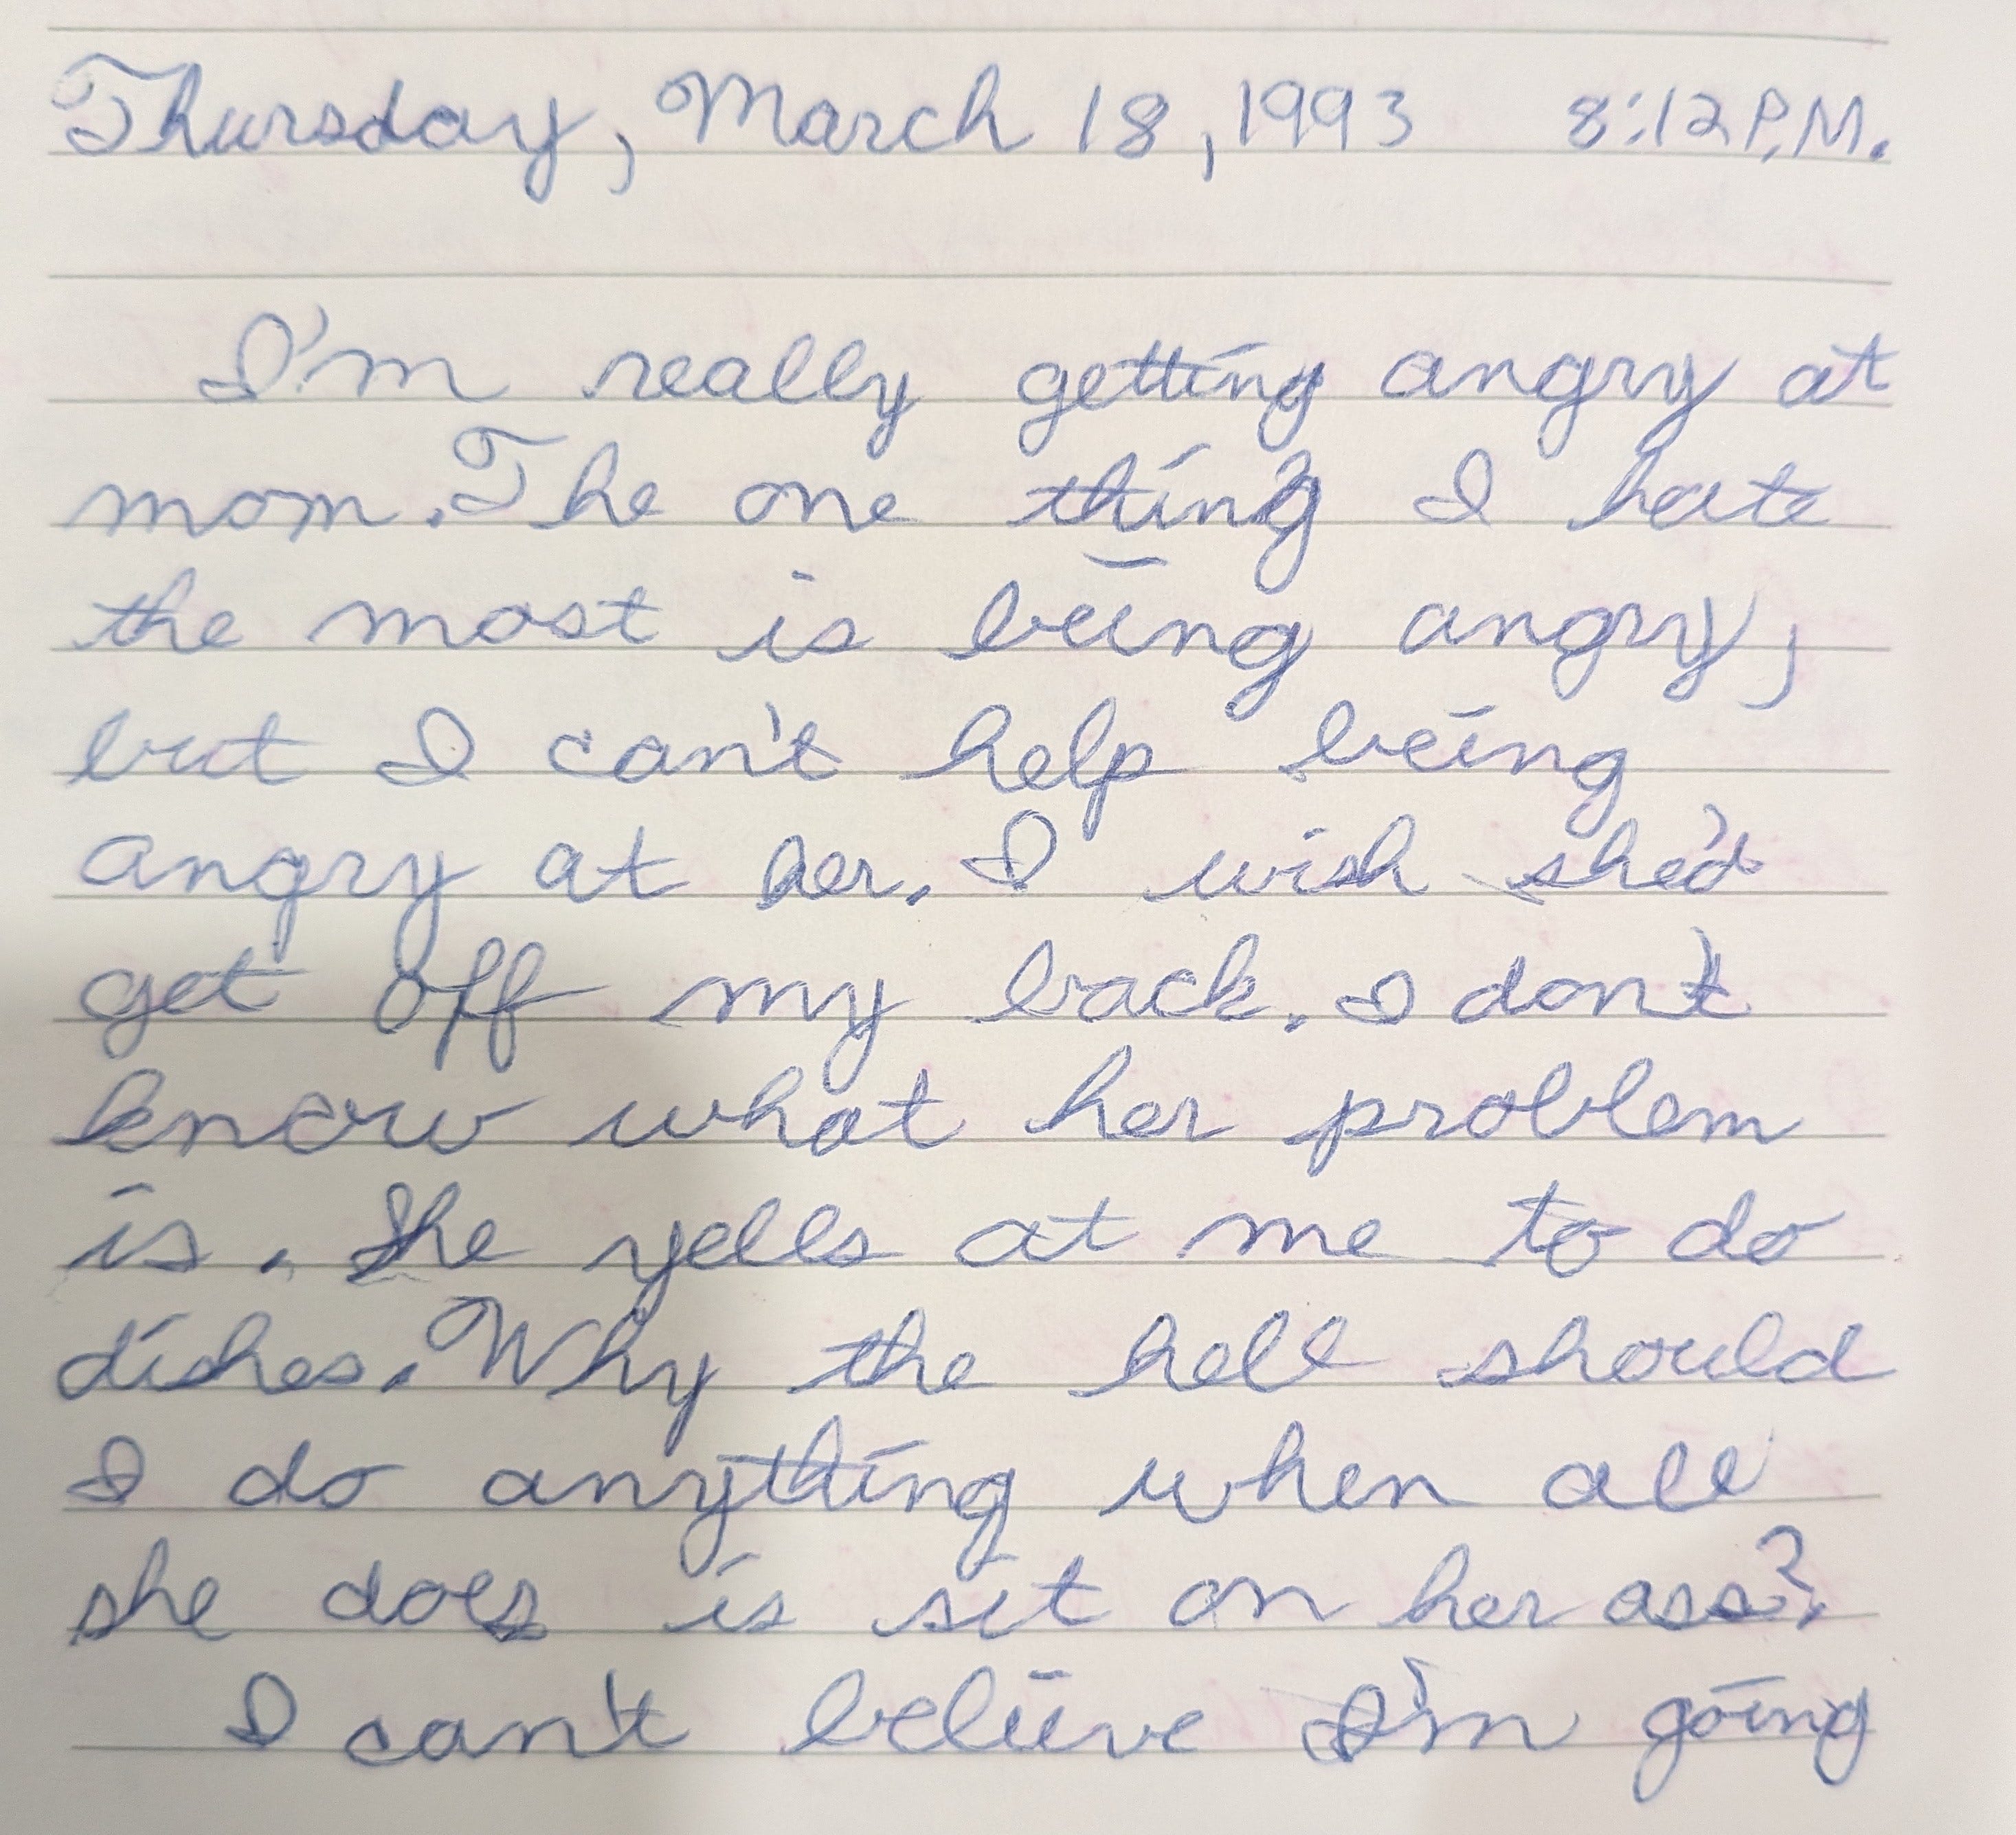 Thursday, March 18, 1993 8:12 P.M.
I'm really getting angry at
mom. The one thing I hate
the most is being angry,
but I can't help being
angry at her. I wish she'd
get off my back. I don't
know what her problem
is. She yells at me to do
dishes. Why the hell should
I do anything when all
she does is sit on her ass?
I can't believe I'm going